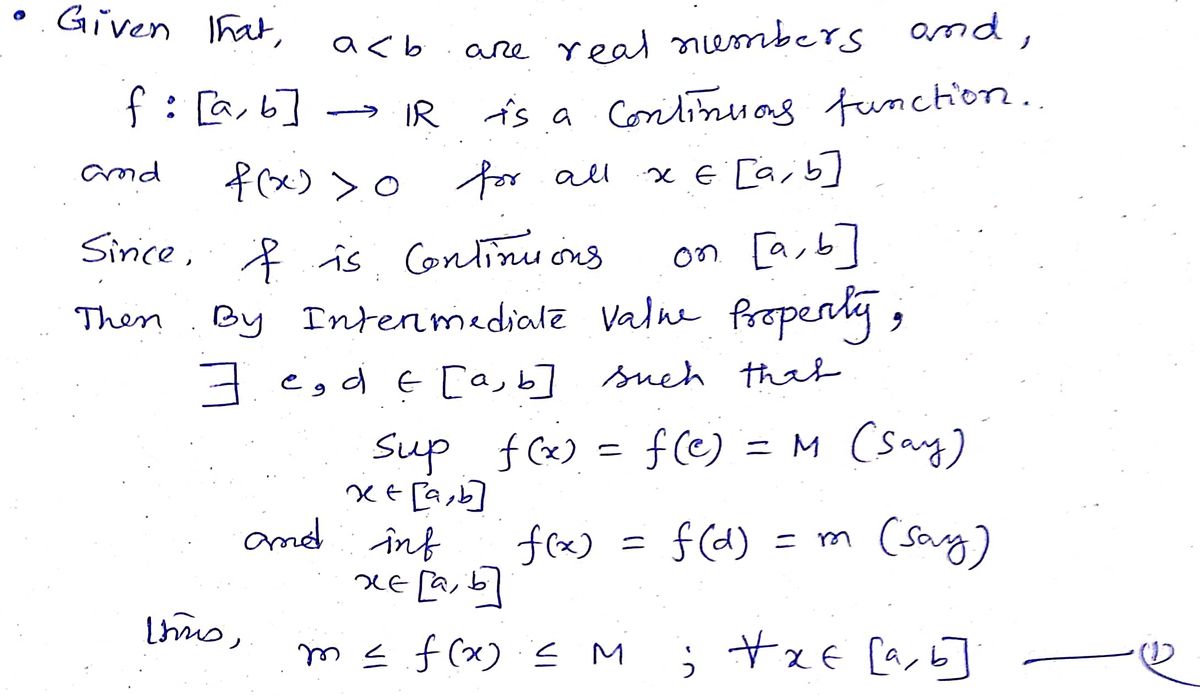 • Given that, a<b are real numbers and,
f : [a,b] → ℝ is a continuous function..
and f(x) > 0 for all x ∈ [a,b]
Since, f is continuous on [a,b]
Then By Intermediate Value Property,
∃ c, d ∈ [a,b] such that
sup f(x) = f(c) = M (say)
x ∈ [a,b]
and inf f(x) = f(d) = m (say)
x ∈ [a,b]
thus, m ≤ f(x) ≤ M ; ∀ x ∈ [a,b] —— (1)